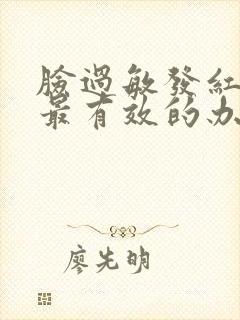 臉過敏發紅
最有效的办
廖先明